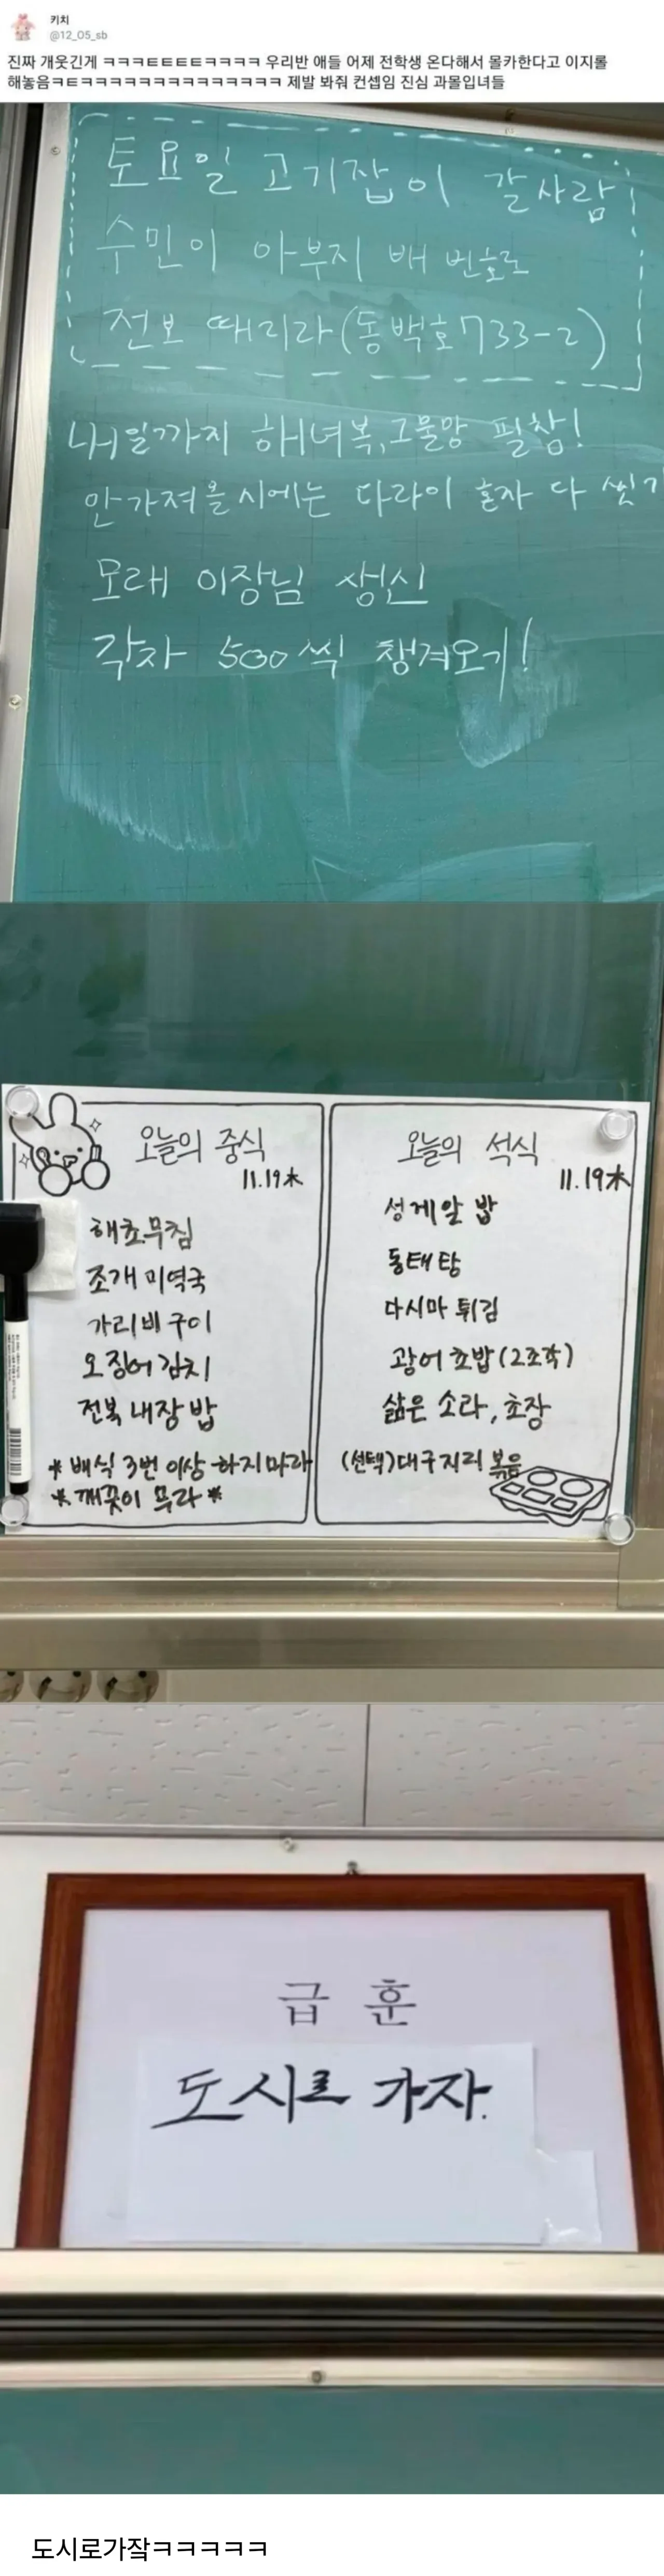 키치
@12_05_sb
진짜 개웃긴게 ㅋㅋㅋㅌㅌㅌㅌㅋㅋㅋㅋ 우리반 애들 어제 전학생 온다해서 몰카한다고 이지롤
해놓음ㅋㅌㅋㅋㅋㅋㅋㅋㅋㅋㅋㅋㅋㅋㅋㅋ 제발 봐줘 컨셉임 진심 과몰입녀들
토요일 고기잡이 갈사람
수민이 아부지 배 번호로
전보 때리라(동백호733-2)
내일까지 해녀복,그물망 필참!
안가져올시에는 다라이 혼자 다 씻기
모레 이장님 생신
각자 500씩 챙겨오기!
오늘의 중식
11.19木
해초무침
조개 미역국
가리비 구이
오징어 김치
전복 내장 밥
*배식 3번 이상 하지마라
*깨끗이 무라*
오늘의 석식
11.19木
성게알 밥
동태탕
다시마 튀김
광어 초밥(2조각)
삶은 소라, 초장
(선택)대구지리 볶음
급 훈
도시로 가자.
도시로가잨ㅋㅋㅋㅋㅋ